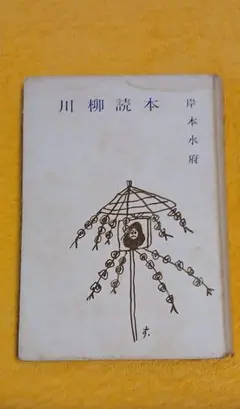 川柳読本
岸本水府
す.